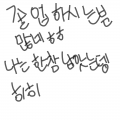 꼴 업 하시는분
많네 ㅎㅎ
나는 한참 남았는뎅
히히